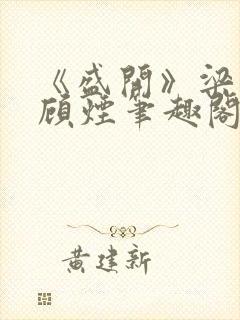 《盛開》梁
顧煙筆趣閣
黃建新